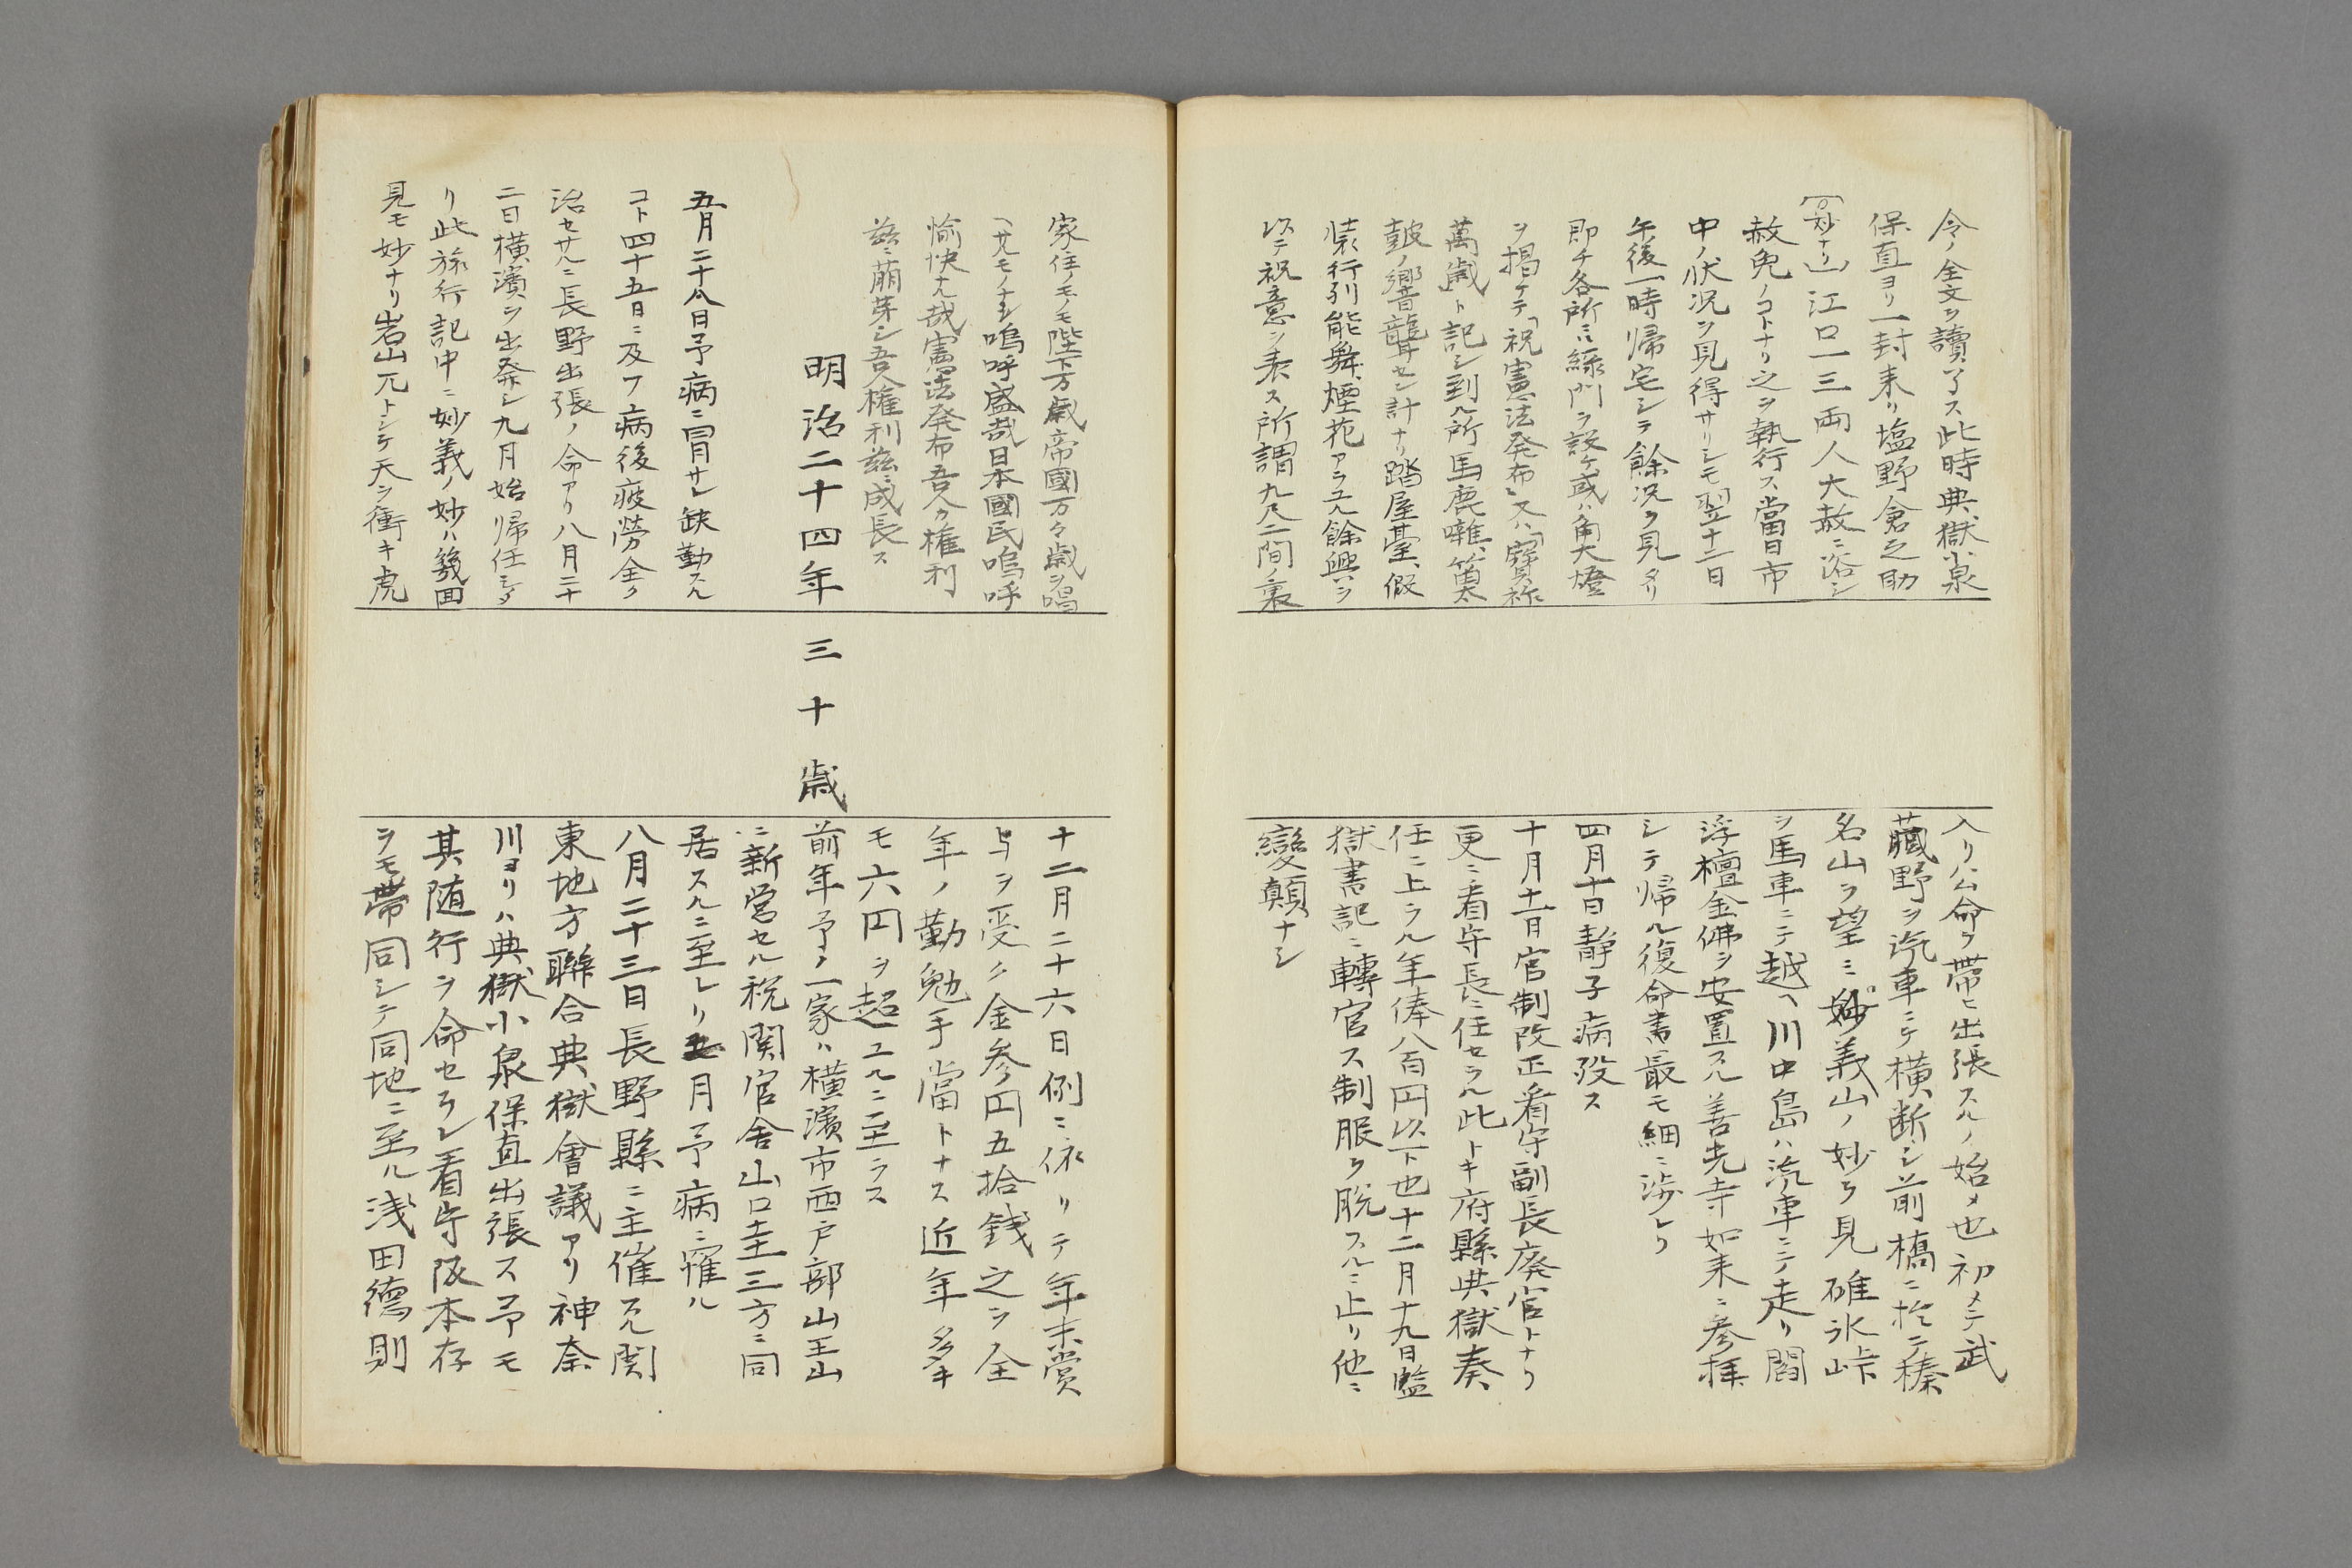 令ノ全文ヲ讀了ス此時典獄小泉
保直ヨリ一封来リ塩野倉之助
(妙ナリ)江口一三両人大赦ニ浴シ
赦免ノコトナリ之ヲ執行ス當日市
中ノ状況ヲ見得サリシモ翌十二日
午後一時帰宅シテ餘況ヲ見タリ
即チ各所ニ緑門ヲ設ケ或ハ角大燈
ヲ掲ケテ「祝憲法発布」又ハ「寳祚
萬歳」ト記シ到ル所馬鹿囃、
鼓ノ響音聾セン計ナリ踏屋臺、假
装行列能舞、煙花アラユル餘興ヲ
以テ祝意ヲ表ス所謂九尺二間ノ裏
入リ公命ヲ帯ヒ出張スルノ始メ也初メテ武
藏野ヲ汽車ニテ横断シ前橋ニ於テ榛
名山ヲ望ミ妙義山ノ妙ヲ見碓氷峠
ヲ馬車ニテ越ヘ川中島ハ汽車ニテ走リ閻
浮檀金佛ヲ安置スル善光寺如来ニ参拝
シテ帰ル復命書最モ細ニ渉レリ
四月十日静子病歿ス
十月十一日官制改正看守副長廃官トナリ
更ニ看守長ニ任セラル此トキ府縣典獄奏
任ニ上ラル年俸八百円以下也十二月十九日監
獄書記ニ轉官ス制服ヲ脱スルニ止リ他ニ
變顛ナシ
家住ノモノモ陛下万歳帝國万々歳ヲ唱
ヘサルモノナシ嗚呼盛哉日本國民嗚呼
愉快ナル哉憲法発布吾人カ権利
茲ニ萠芽シ吾人権利茲ニ成長ス
明治二十四年 三十歳
五月二十八日予病ニ冒サレ缺勤スル
コト四十五日ニ及フ病後疲勞全ク
治セサルニ長野出張ノ命アリ八月二十
二日横濱ヲ出発シ九月始帰任シタ
リ此旅行記中ニ妙義ノ妙ハ幾回
見モ妙ナリ岩山兀トシテ天ヲ衝キ虎
十二月二十六日例ニ依リテ年末賞
与ヲ受ク金参円五拾銭之ヲ全
年ノ勤勉手當トナス近年多キ
モ六円ヲ超ユルニ至ラス
前年予ノ一家ハ横濱市西戸部山王山
ニ新営セル税関官舎山口圭三方ニ同
居スルニ至レリ五月予病ニ罹ル
八月二十三日長野縣ニ主催スル関
東地方聯合典獄會議アリ神奈
川ヨリハ典獄小泉保直出張ス予モ
其随行ヲ命セラレ看守阪本存
ヲモ帯同シテ同地ニ至ル浅田德則